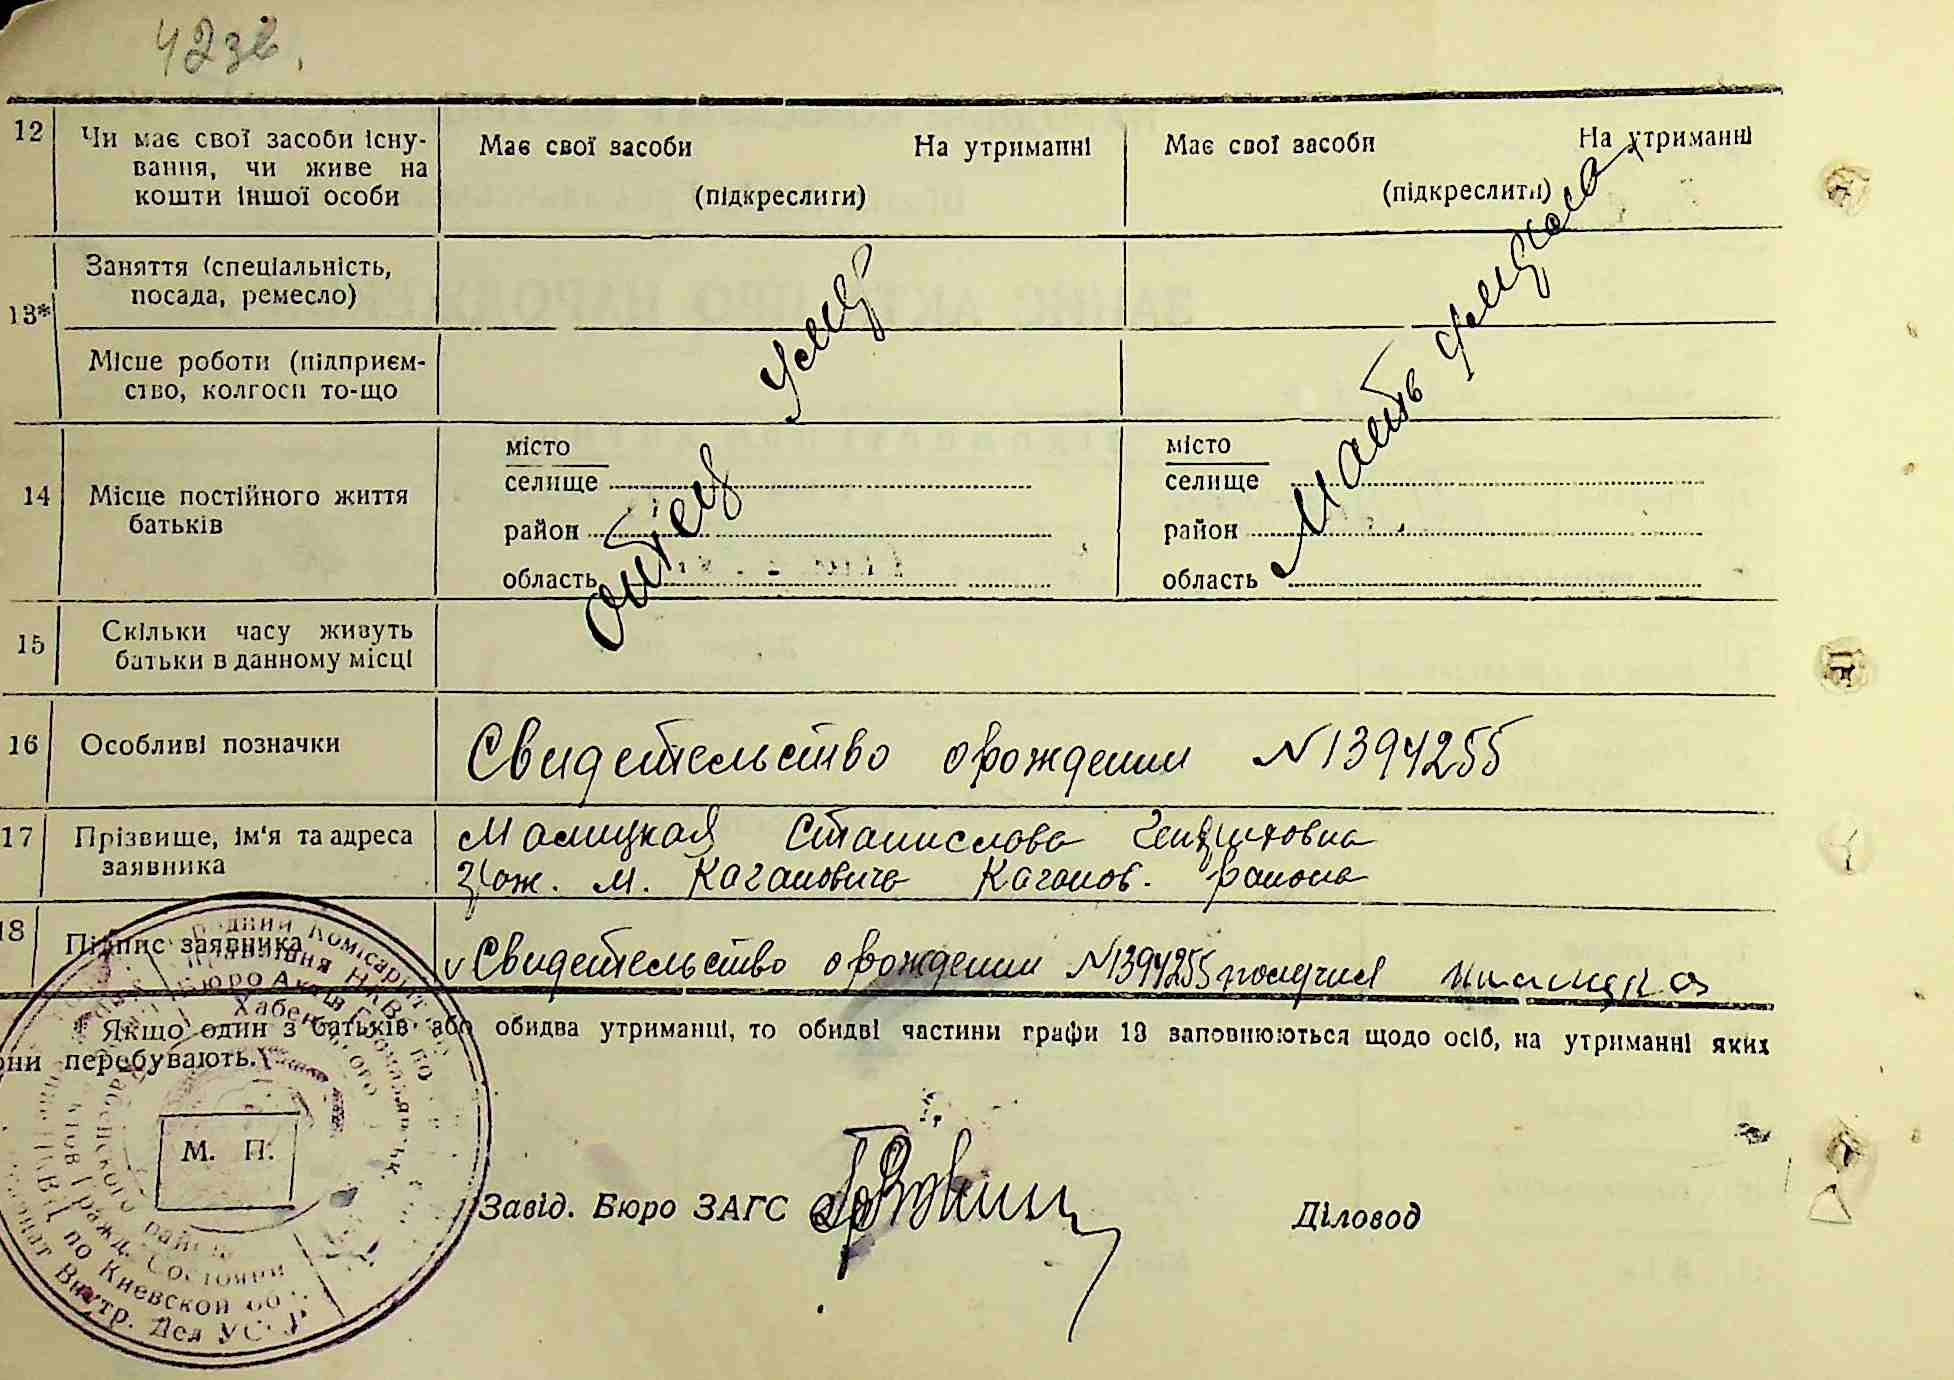 42зв.
12 Чи має свої засоби існу-
вання, чи живе на
кошти іншої особи
Має свої засоби На утриманні
(підкреслити)
Має свої засоби На утриманні
(підкреслити)
13* Заняття (спеціальність,
посада, ремесло)
Місце роботи (підприєм-
ство, колгосп то-що
отец умер
Мать
14 Місце постійного життя
батьків
місто
селище
район
область
місто
селище
район
область
15 Скільки часу живуть
батьки в данному місці
16 Особливі позначки
Свидетельство о рождении №1394255
17 Прізвище, ім'я та адреса
заявника
Малицкая Станислова
м. Кагановича Каганов. района
18 Підпис заявника
Свидетельство о рождении №1394255 получил
Якщо один з батьків або обидва утриманці, то обидві частини графи 13 заповнюються щодо осіб, на утриманні яких
они перебувають.
М. П.
Завід. Бюро ЗАГС
Діловод
Комісаріат
Управління НКВС по
Бюро Актів Громадянськ.
Хабен ого
Хабенского района
Актов Гражд. Состояни
НКВД по Киевской об
Внутр. Дел УССР